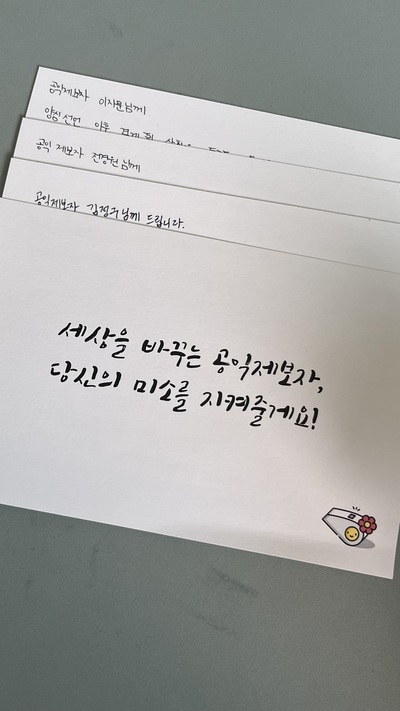 공익제보자 이지문님께
양심 선언 이후
공익 제보자 전경원 님께
공익제보자 김정구님께 드립니다.
세상을 바꾸는 공익제보자,
당신의 미소를 지켜줄게요!